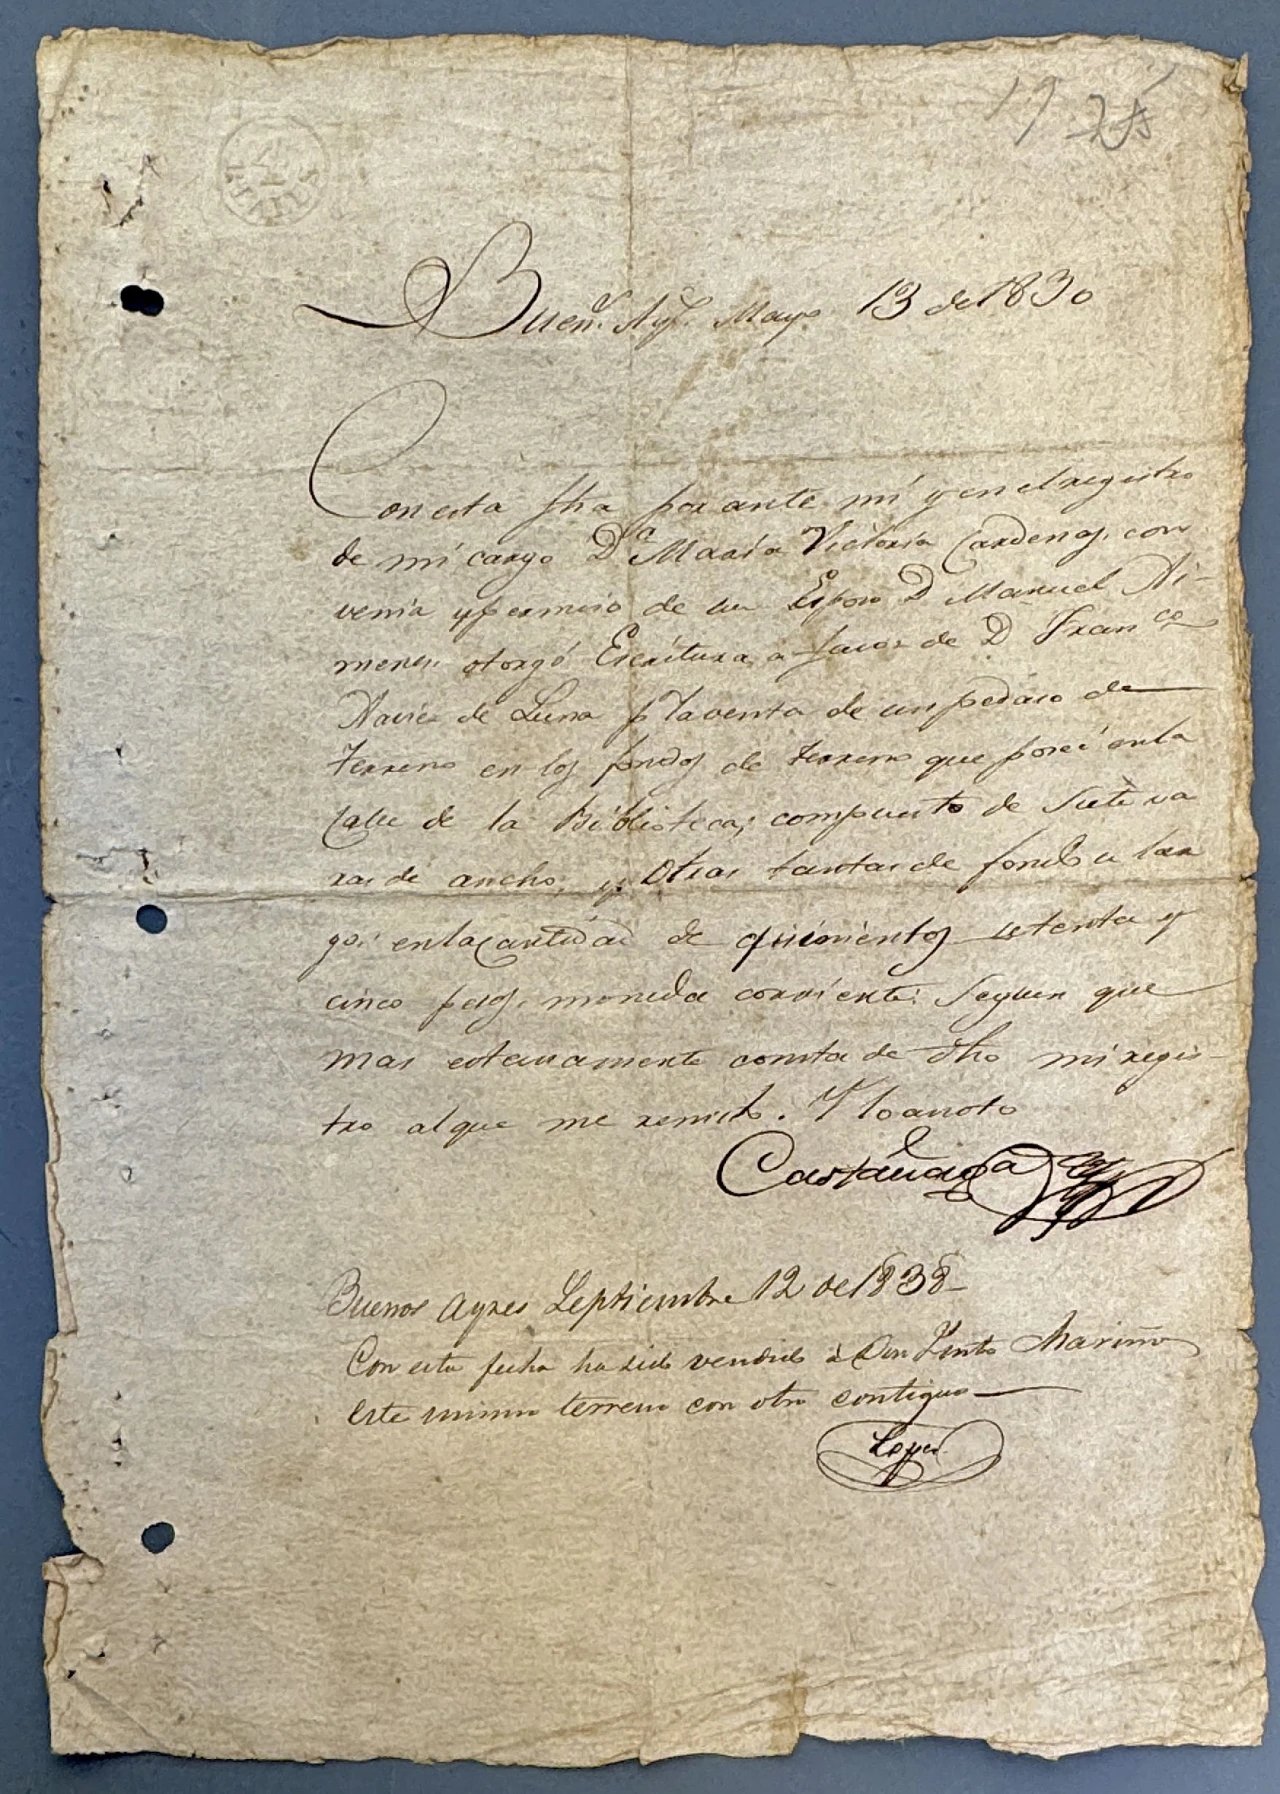 19 25
Buen.s Ay.s Mayo 13 de 1830
Con esta fha por ante mi y en el registro
de mi cargo D.a Maria Victoria Cardenas, con
venia y permiso de su Esposo D Manuel Xi-
menes otorgó Escritura a favor de D Fran.co
Xavier de Luna p.r la venta de un pedaso de
terreno en los fondos de terreno que posee en la
Calle de la Biblioteca; compuesto de Siete va
ras de ancho, y otras tantas de fondo a lar
go: en la Cantidad de quinientos setenta y
cinco pesos, moneda corriente: Segun que
mas estensamente consta de dho mi regis
tro al que me remito. Y lo anoto
Castañaga
Buenos Ayres Septiembre 12 de 1838
Con esta fecha ha sido vendido á Don Mariño
este mismo terreno con otro contiguo
Lopez